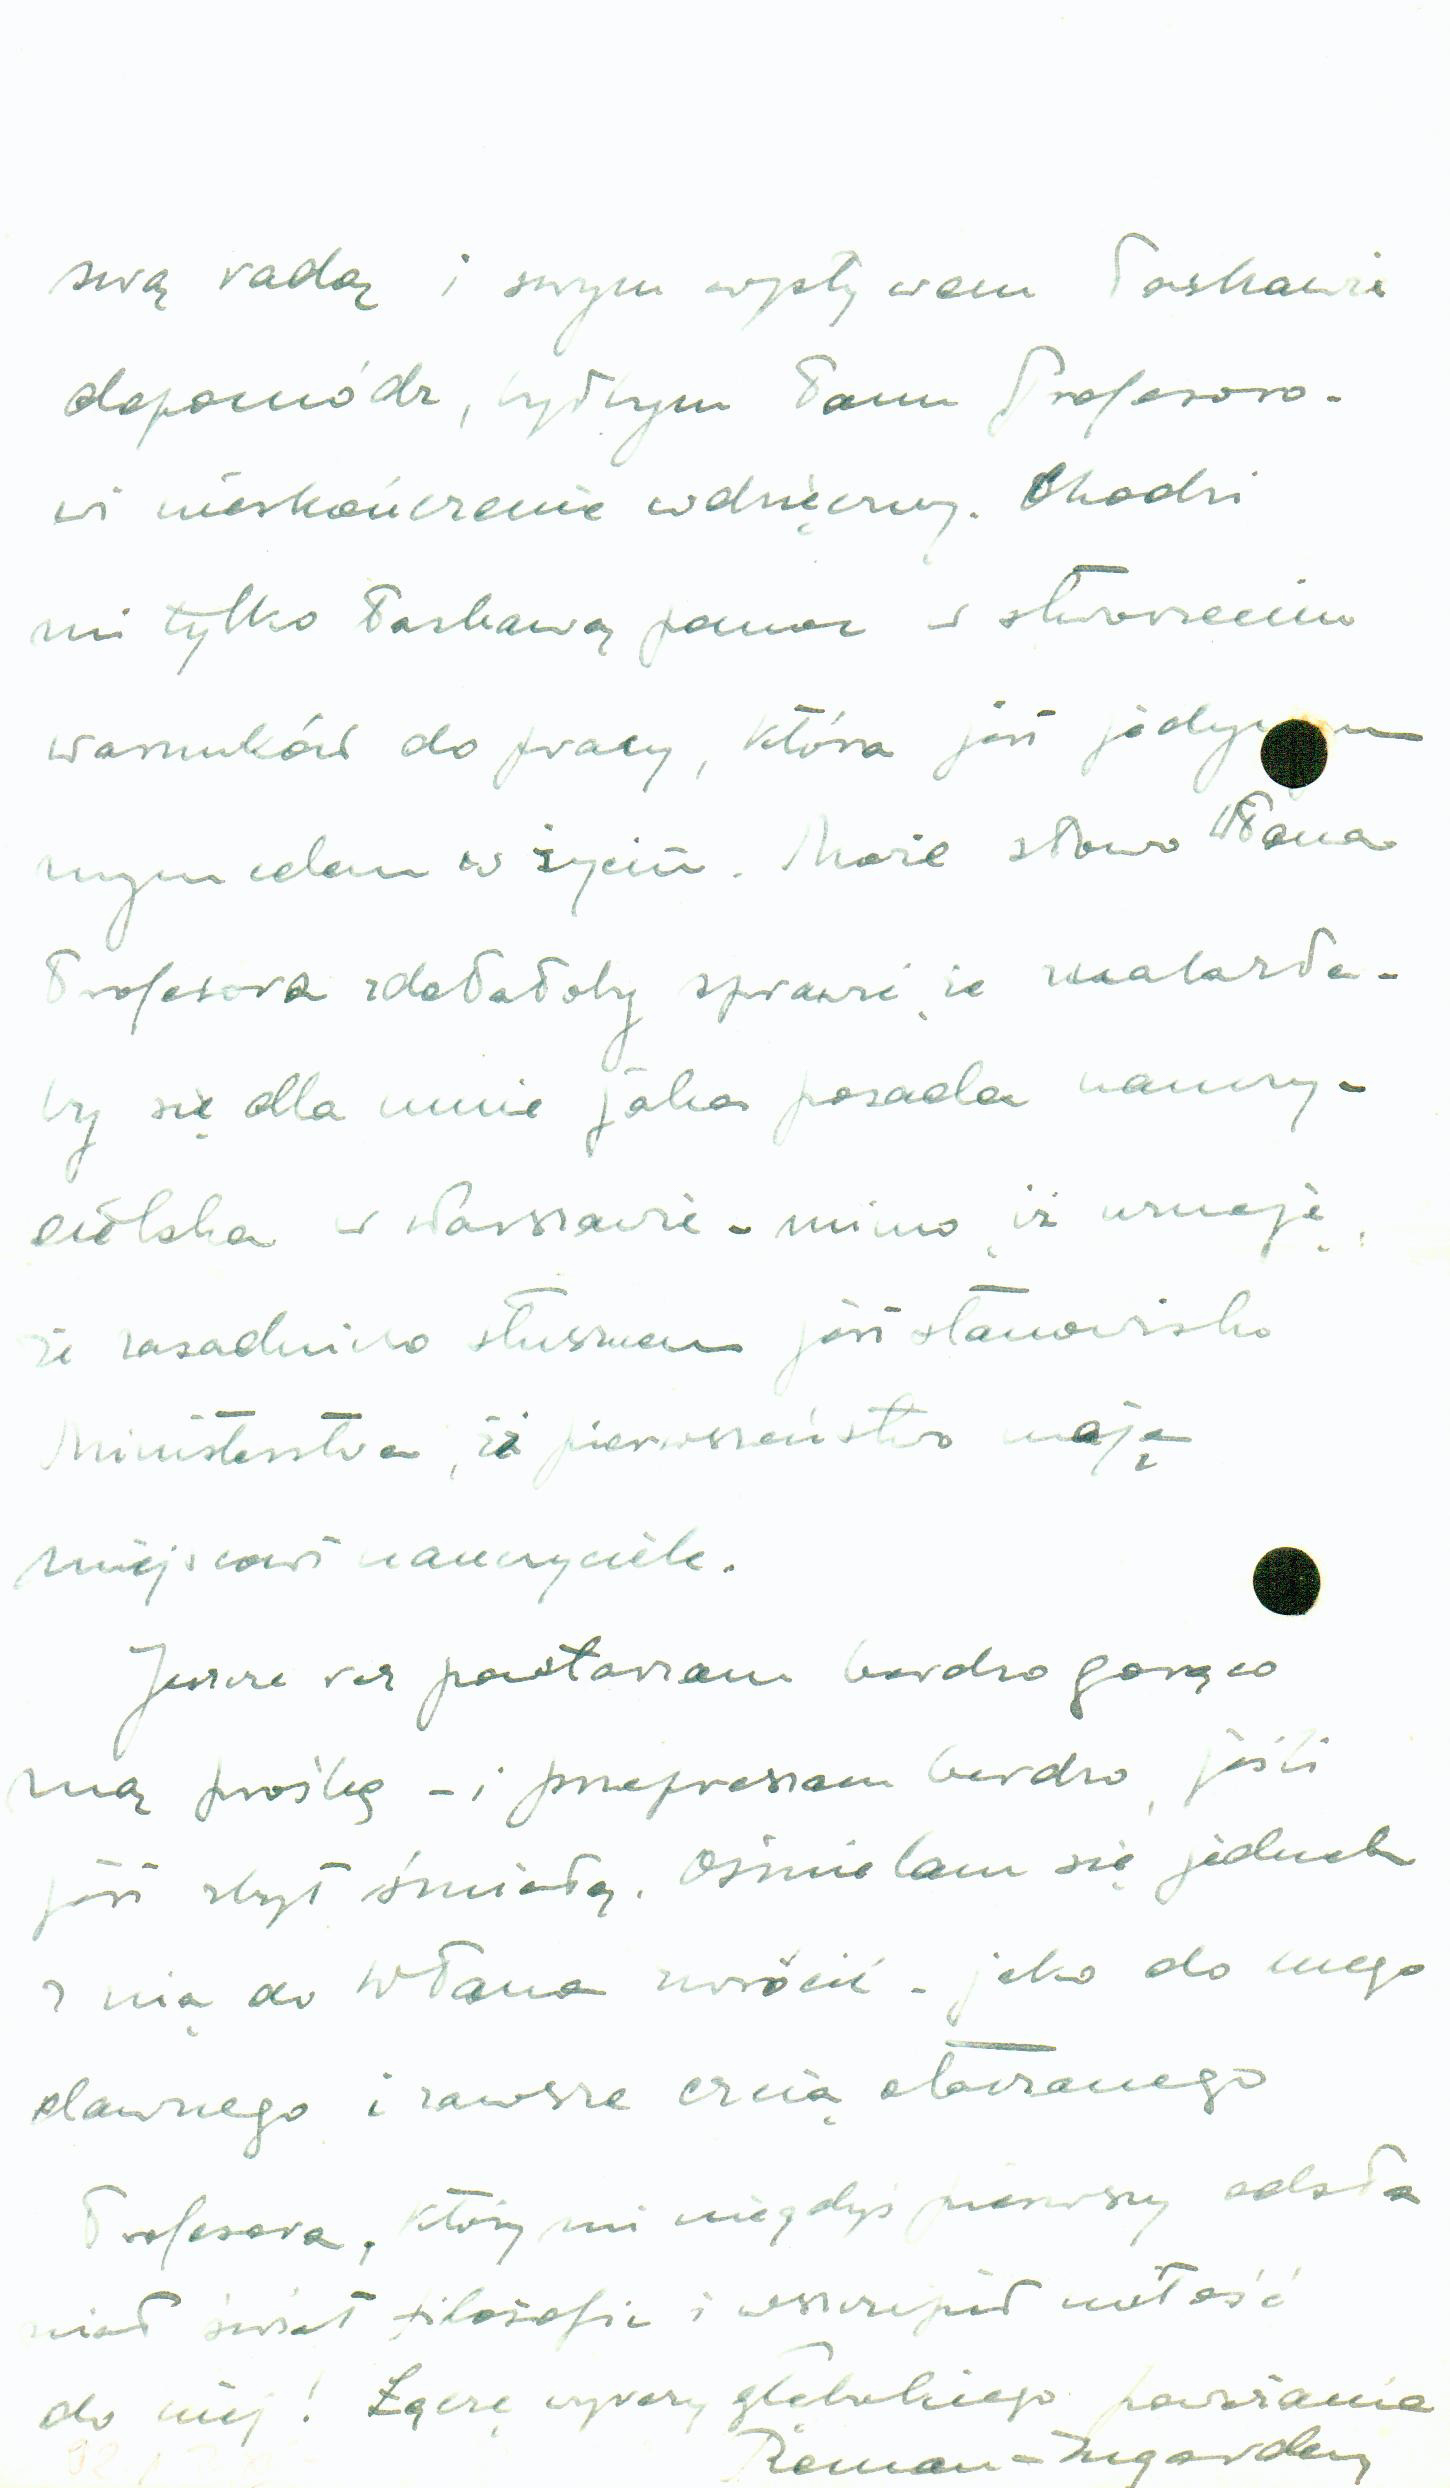 swą radą i swym wpływem łaskawie
dopomódz, byłbym Panu Profesoro-
wi nieskończenie wdzięczny. Chodzi
mi tylko łaskawą pomoc w stworzeniu
warunków do pracy, która jest jedynym
mym celem w życiu. Może słowo WPana
Profesora zdołałoby sprawić, że znalazła-
by się dla mnie jaka posada nauczy-
cielska w Warszawie - mimo, iż uznaję,
że zasadniczo słusznem jest stanowisko
Ministerstwa, iż pierwszeństwo mają
miejscowi nauczyciele.
Jeszcze raz powtarzam bardzo gorąco
mą prośbę - i przepraszam bardzo, jeśli
jest zbyt śmiałą. Ośmielam się jednak
z nią do WPana zwrócić - jako do mego
dawnego i zawsze czcią otoczonego
Profesora, który mi niegdyś pierwszy odsło
nił świat filozofii i wszczepił miłość
do niej! Łączę wyrazy głębokiego poważania
Roman Ingarden